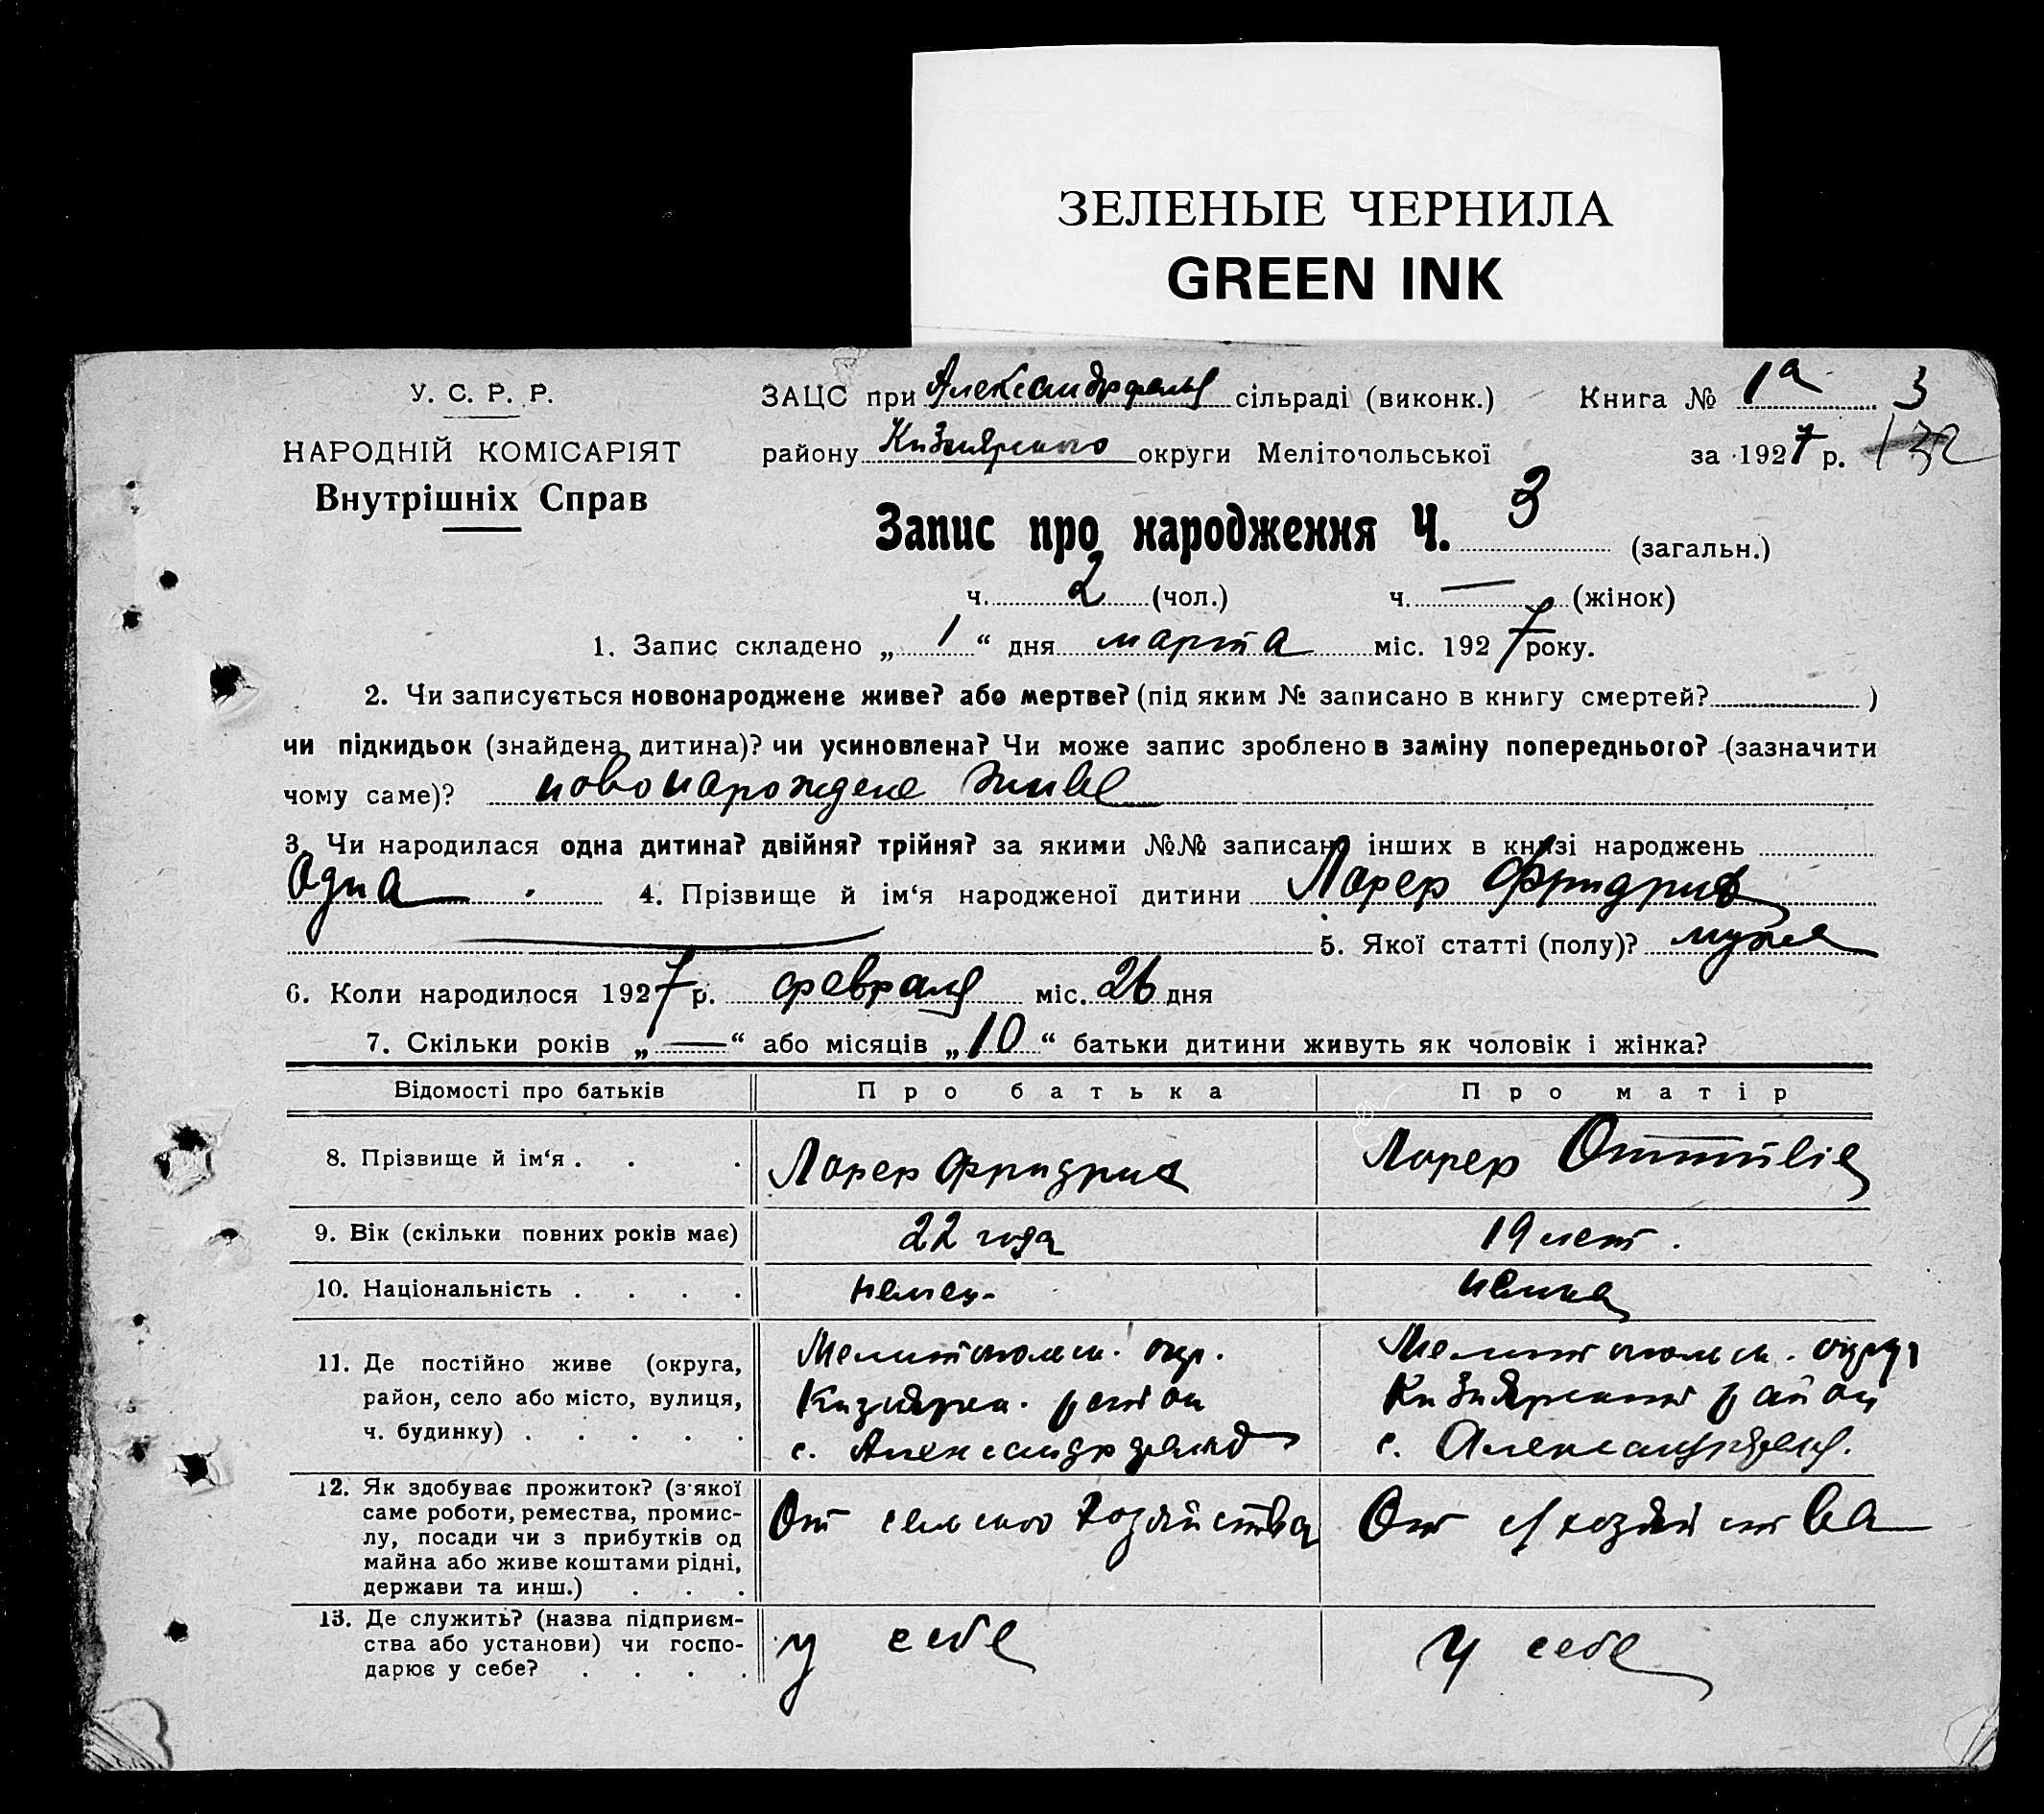 ЗЕЛЕНЫЕ ЧЕРНИЛА
GREEN INK
У. С. Р. Р.
НАРОДНІЙ КОМІСАРІЯТ
Внутрішніх Справ
ЗАЦС при Александрфельд сільраді (виконк.) Книга № 1а 3
району Кизиярского округи Мелітопольської за 1927 р. 132
Запис про народження Ч. 3 (загальн.)
ч. 2 (чол.) ч. — (жінок)
1. Запис складено „ 1 “ дня марта міс. 1927 року.
2. Чи записується новонароджене живе? або мертве? (під яким № записано в книгу смертей? )
чи підкидьок (знайдена дитина)? чи усиновлена? Чи може запис зроблено в заміну попереднього? (зазначити
чому саме)? новонарождене живе
3. Чи народилася одна дитина? двійня? трійня? за якими №№ записано інших в книзі народжень
Одна 4. Прізвище й ім‘я народженої дитини Лорер Фридрих
5. Якої статті (полу)? мужск
6. Коли народилося 1927 р. февраля міс. 26 дня
7. Скільки років „ — “ або місяців „ 10 “ батьки дитини живуть як чоловік і жінка?
Відомості про батьків Про батька Про матір
8. Прізвище й ім‘я . . . Лорер Фридрих Лорер
9. Вік (скільки повних років має) 22 года 19 лет.
10. Національність . . . . немец немка
11. Де постійно живе (округа, Мелитопольск. окр. Мелитопольск. округ
район, село або місто, вулиця, Кизиярск. район Кизиярский район
ч. будинку) . . . . . с. Александрфельд с. Александрфельд.
12. Як здобуває прожиток? (з‘якої
саме роботи, ремества, промис- От сельского хозяйства От с/хозяйства
лу, посади чи з прибутків од
майна або живе коштами рідні,
держави та инш.) . . .
13. Де служить? (назва підприєм-
ства або установи) чи госпо- у себе у себе
дарює у себе? . . . .